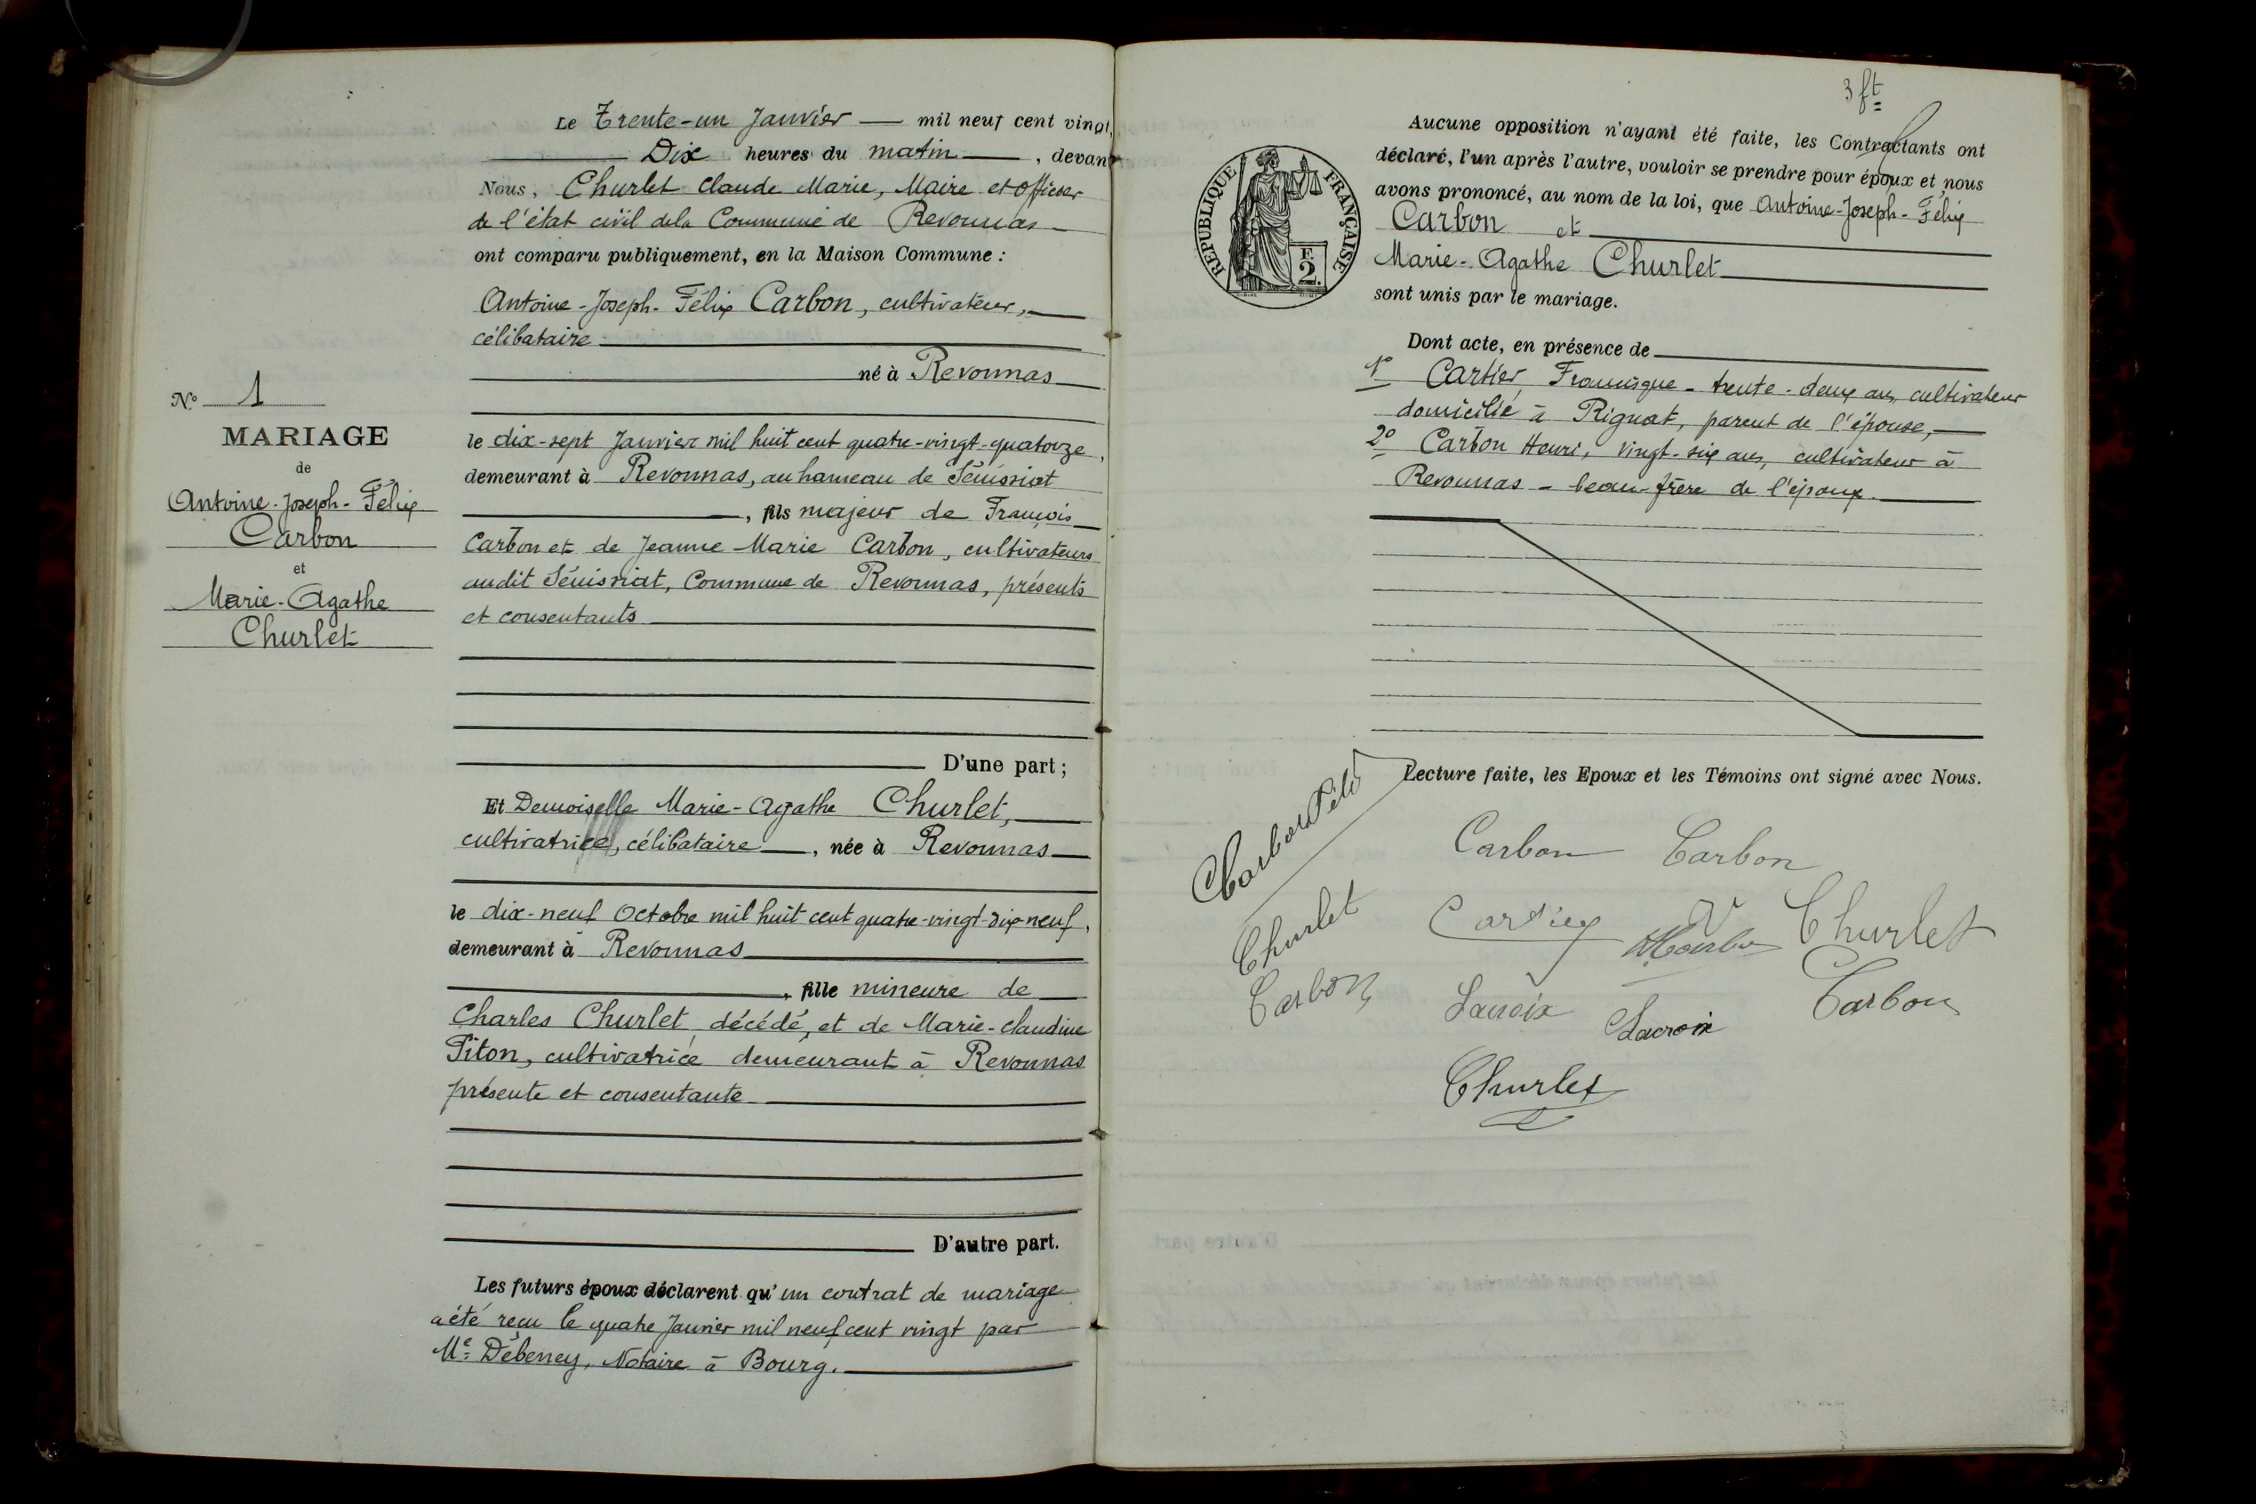 N° 1
MARIAGE
de
Antoine-Joseph-Félix
Carbon
et
Marie-Agathe
Churlet
Le Trente-un Janvier mil neuf cent vingt,
Dix heures du matin, devant
Nous, Churlet Claude Marie, Maire et Officier
de l'état civil de la Commune de Revonnas
ont comparu publiquement, en la Maison Commune :
Antoine-Joseph-Félix Carbon, cultivateur,
célibataire
né à Revonnas
le dix-sept Janvier mil huit cent quatre-vingt-quatorze,
demeurant à Revonnas, au hameau de Sénissiat
, fils majeur de François
Carbon et de Jeanne Marie Carbon, cultivateurs
audit Sénissiat, Commune de Revonnas, présents
et consentants
D'une part ;
Et Demoiselle Marie-Agathe Churlet,
cultivatrice, célibataire, née à Revonnas
le dix-neuf Octobre mil huit cent quatre-vingt-dix neuf,
demeurant à Revonnas
, fille mineure de
Charles Churlet, décédé, et de Marie-Claudine
Piton, cultivatrice demeurant à Revonnas
présente et consentante
D'autre part.
Les futurs époux déclarent qu'un contrat de mariage
a été reçu le quatre Janvier mil neuf cent vingt par
Me Débeney, Notaire à Bourg.
3 ft
RÉPUBLIQUE FRANÇAISE
F
2.
Aucune opposition n'ayant été faite, les Contractants ont
déclaré, l'un après l'autre, vouloir se prendre pour époux et nous
avons prononcé, au nom de la loi, que Antoine-Joseph-Félix
Carbon et
Marie-Agathe Churlet
sont unis par le mariage.
Dont acte, en présence de
1° Cartier, Francisque - trente-deux ans, cultivateur
domicilié à Rignat, parent de l'épouse,
2° Carbon Henri, vingt-six ans, cultivateur à
Revonnas - beau-frère de l'époux.
Lecture faite, les Epoux et les Témoins ont signé avec Nous.
Carbon
Churlet
Carbon
Carbon Carbon
Cartier Churlet
Lacroix Lacroix Carbon
Churlet